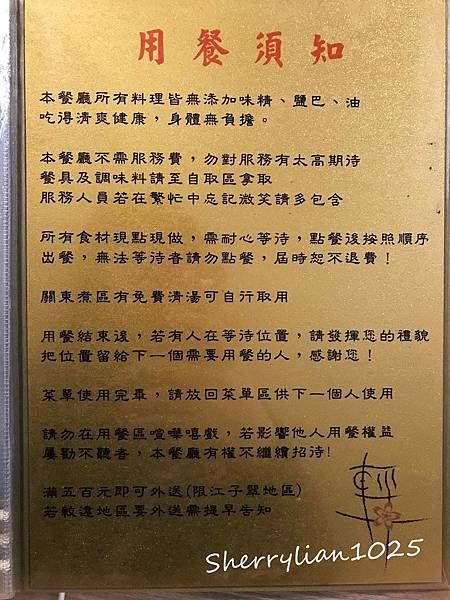 用餐須知
本餐廳所有料理皆無添加味精、鹽巴、油
吃得清爽健康，身體無負擔。
本餐廳不需服務費，勿對服務有太高期待
餐具及調味料請至自取區拿取
服務人員若在繁忙中忘記微笑請多包含
所有食材現點現做，需耐心等待，點餐後按照順序
出餐，無法等待者請勿點餐，屆時恕不退費！
關東煮區有免費清湯可自行取用
用餐結束後，若有人在等待位置，請發揮您的禮貌
把位置留給下一個需要用餐的人，感謝您！
菜單使用完畢，請放回菜單區供下一個人使用
請勿在用餐區喧嘩嘻戲，若影響他人用餐權益
屢勸不聽者，本餐廳有權不繼續招待!
滿五百元即可外送(限江子翠地區)
若較遠地區要外送需提早告知
Sherrylian1025